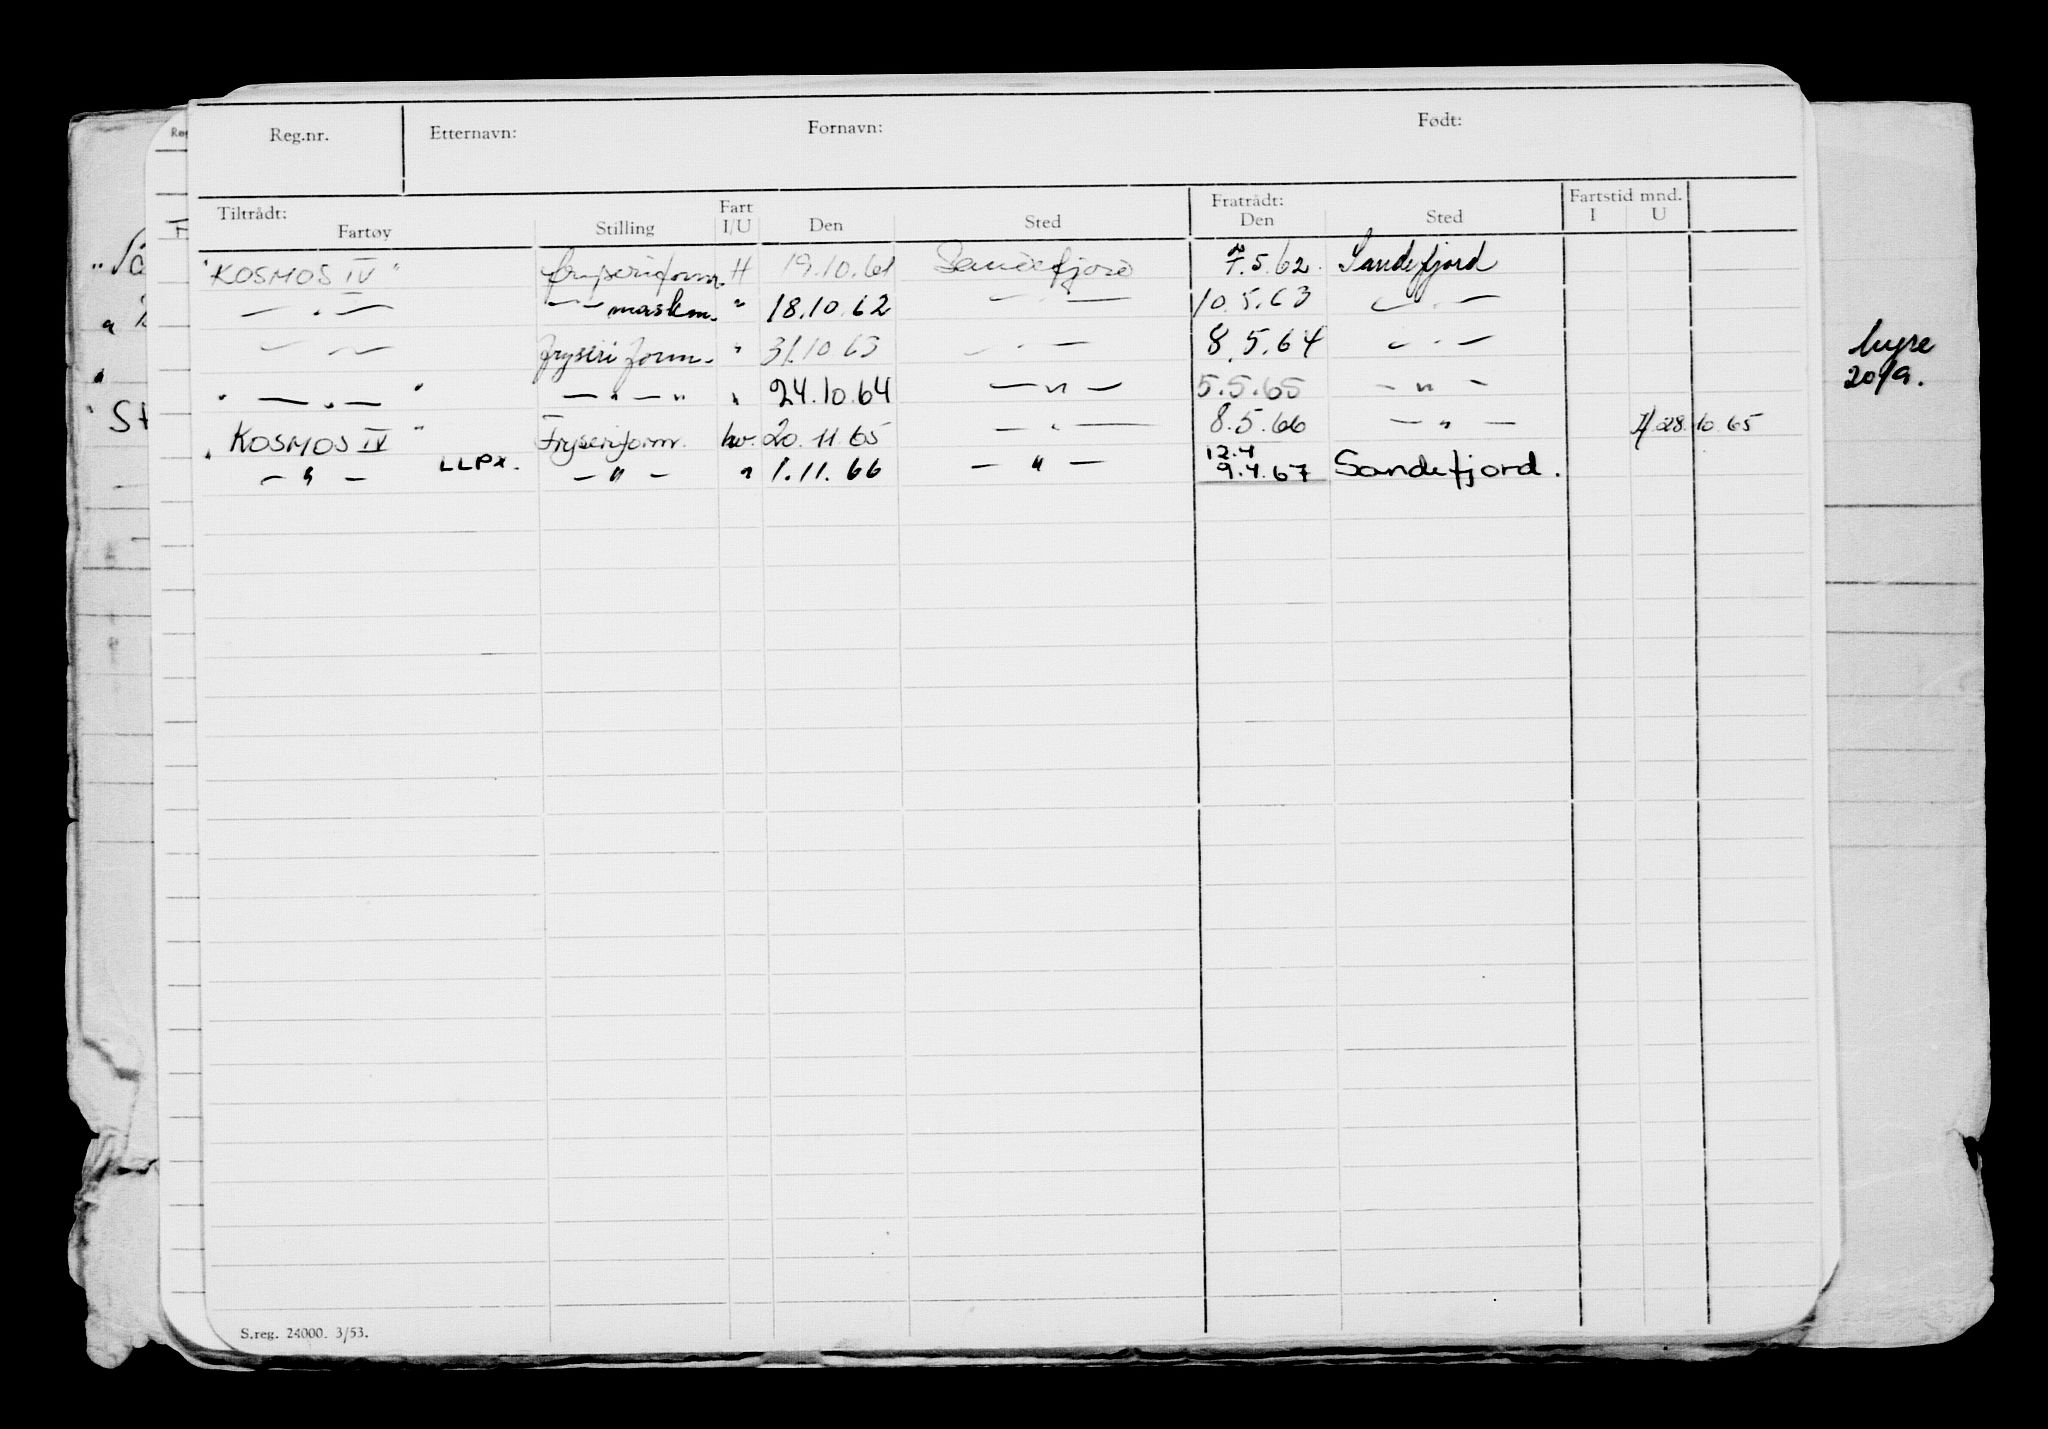 Reg.nr. Etternavn: Fornavn: Født:
Tiltrådt: Fart Fratrådt: Fartstid mnd.
Fartøy Stilling I/U Den Sted Den Sted I U
"KOSMOS IV" fryseriform. H 19.10.61 Sandefjord 7.5.62. Sandefjord
— " — — " — maskm. " 18.10.62 — " — 10.5.63 — " —
— " — fryseri form. " 31.10.63 — " — 8.5.64 — " —
" — " — " — " — " " 24.10.64 — " — 5.5.65 — " —
"KOSMOS IV" Fryseriform. hv. 20.11.65 — " — 8.5.66 — " — 28.10.65
— " — LLPX. — " — " 1.11.66 — " — 12.4 9.4.67 Sandefjord.
hyre
20/9.
S.reg. 24000. 3/53.